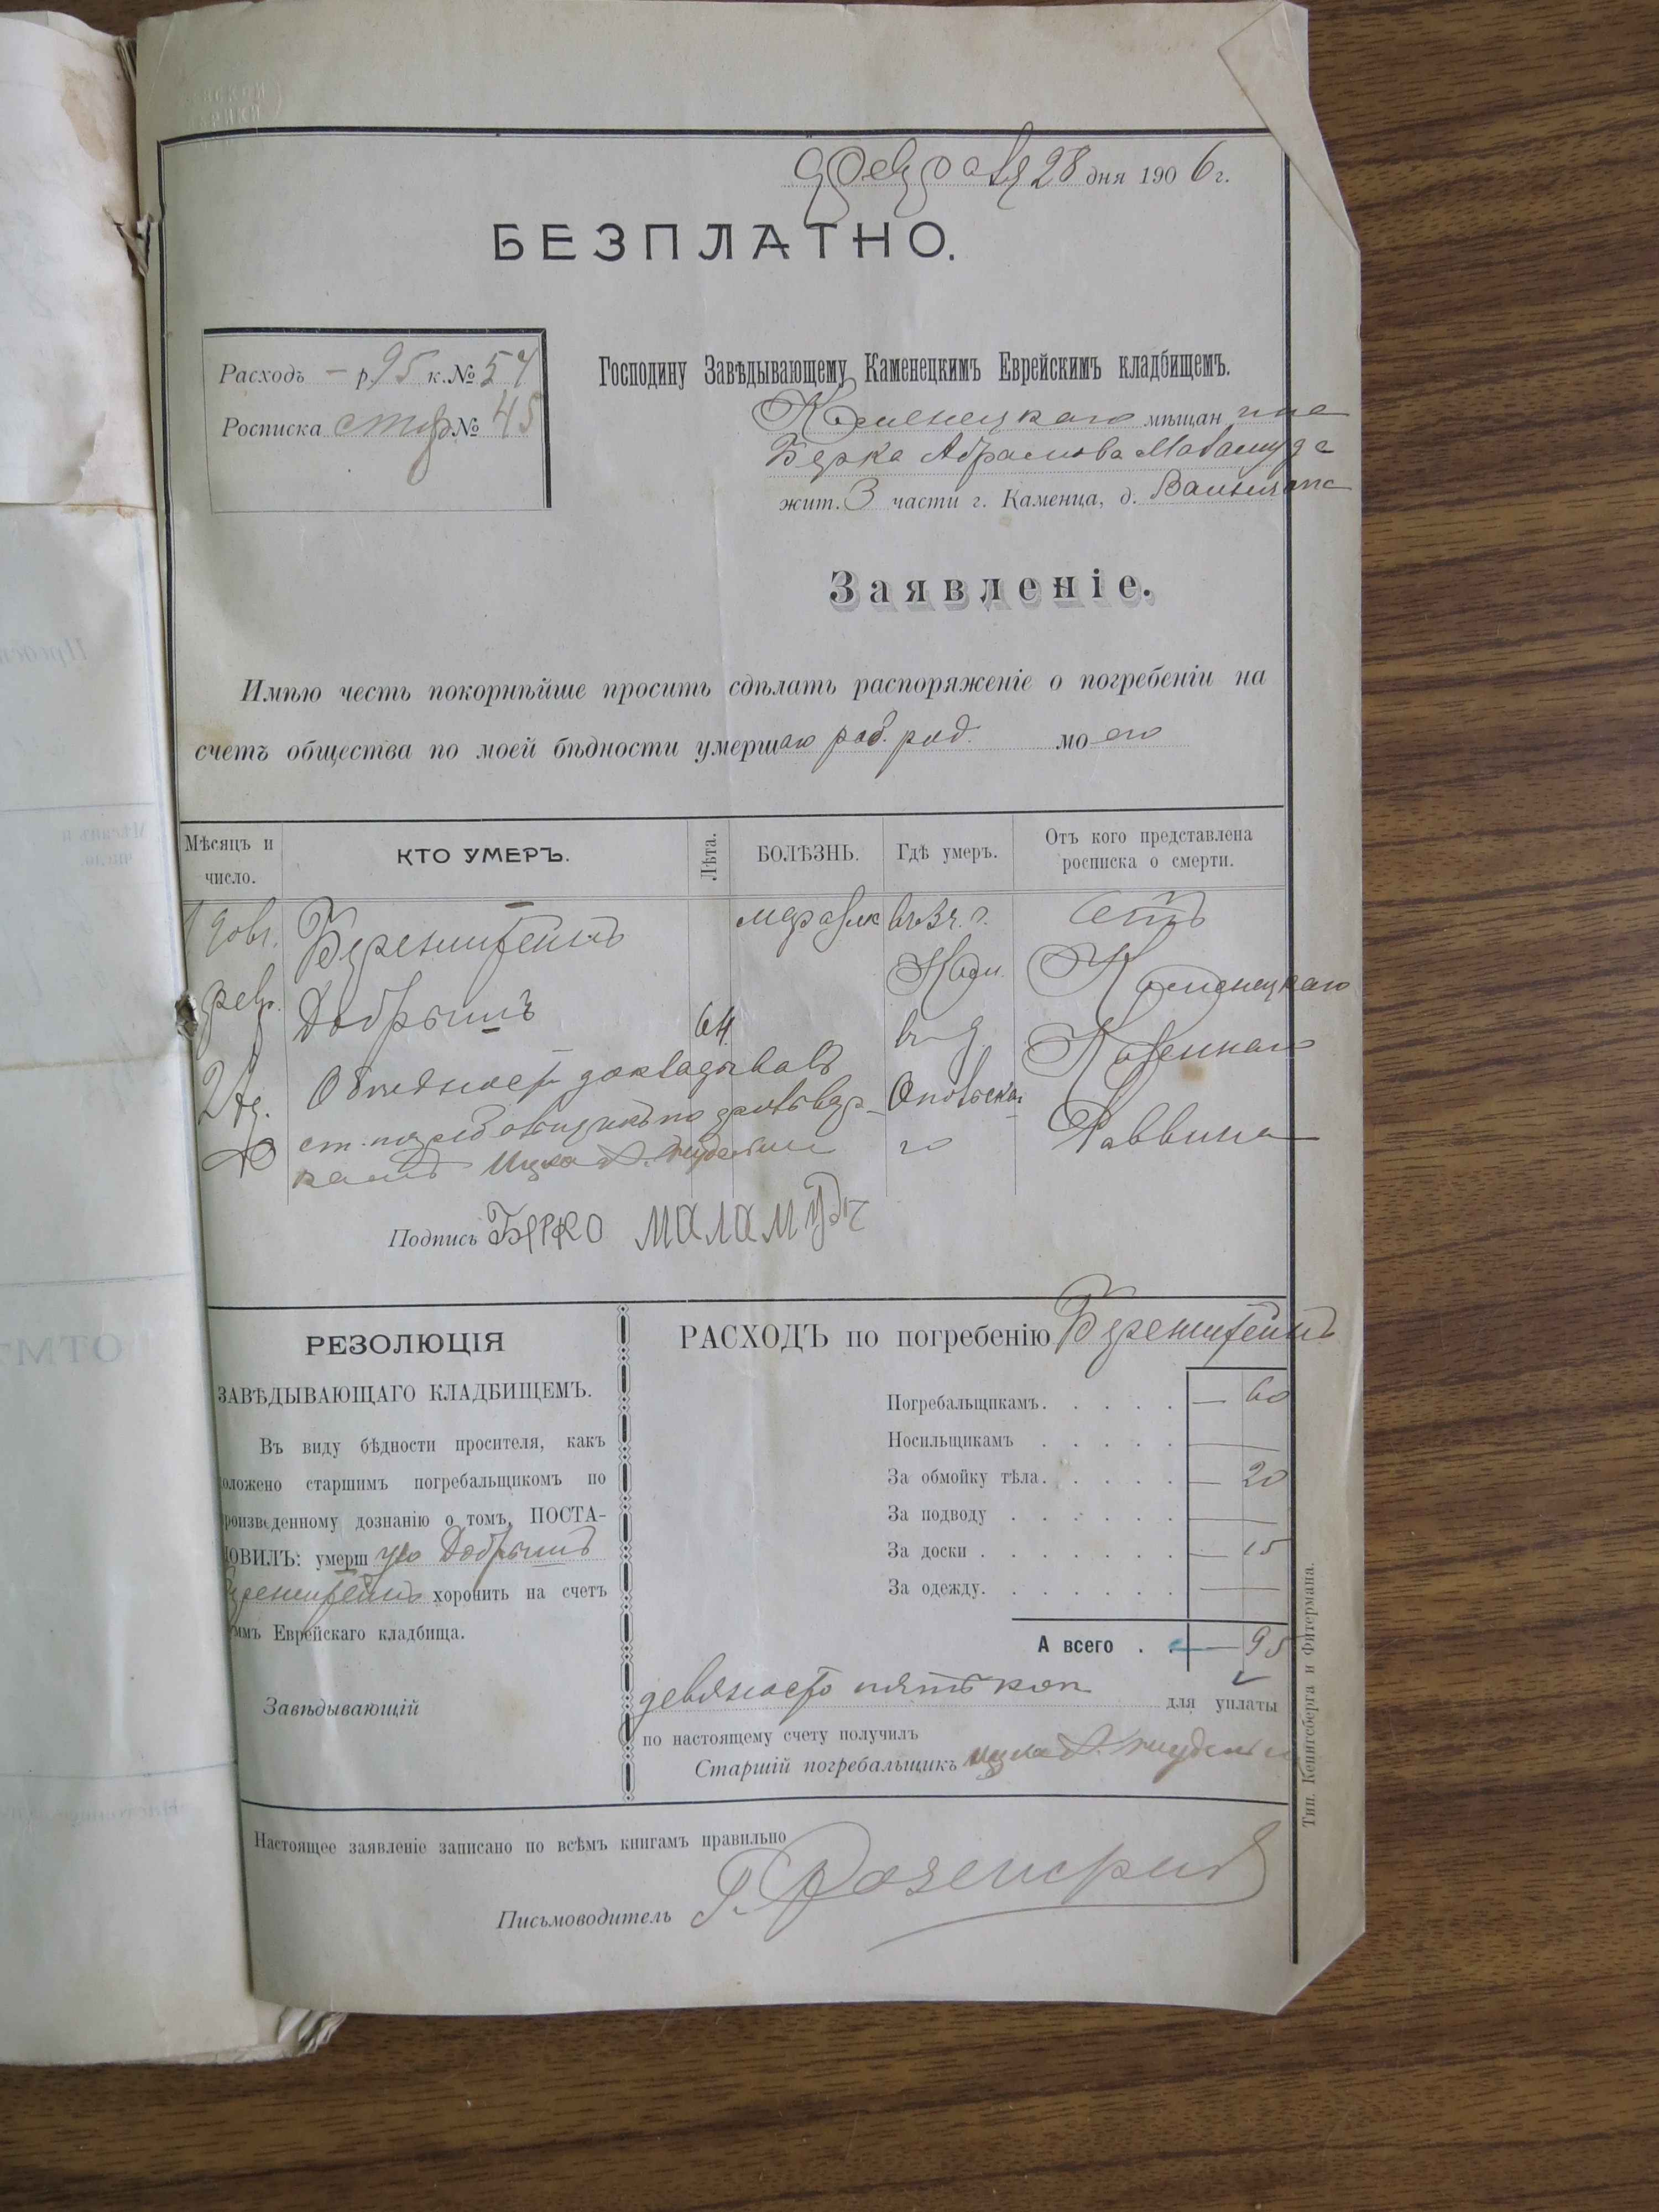 Февраля 28 дня 1906 г.
БЕЗПЛАТНО.
Расходъ — р. 95 к. № 54
Росписка стар № 45
Господину Завѣдывающему Каменецкимъ Еврейскимъ кладбищемъ.
Каменецкаго мѣщанина
Берка Абрамова Маламуда
жит. 3 части г. Каменца, д.
Заявленіе.
Имѣю честь покорнѣйше просить сдѣлать распоряженіе о погребеніи на
счетъ общества по моей бѣдности умершаго мо-его
Мѣсяцъ и число.
КТО УМЕРЪ.
Лѣта.
БОЛѢЗНЬ.
Гдѣ умеръ.
Отъ кого представлена росписка о смерти.
Беренштейнъ
въ 3 ч. г.
февр.
Добрышъ
64
Кам.
Каменецкаго
О бѣдности докладывалъ
Казеннаго
Раввина
Подпись Берко маламудъ
РЕЗОЛЮЦІЯ
ЗАВѢДЫВАЮЩАГО КЛАДБИЩЕМЪ.
Въ виду бѣдности просителя, какъ
оложено старшимъ погребальщикомъ по
роизведенному дознанію о томъ, ПОСТА-
НОВИЛЪ: умерш ую Добрышъ
Беренштейнъ хоронить на счетъ
ммъ Еврейскаго кладбища.
Завѣдывающій
РАСХОДЪ по погребенію Беренштейнъ
Погребальщикамъ. — 60
Носильщикамъ —
За обмойку тѣла. — 20
За подводу —
За доски — 15
За одежду. —
А всего — 95
девяносто пять коп для уплаты
по настоящему счету получилъ
Старшій погребальщикъ
Настоящее заявленіе записано по всѣмъ книгамъ правильно
Письмоводитель
Тип. Кенигсберга и Фитермана.